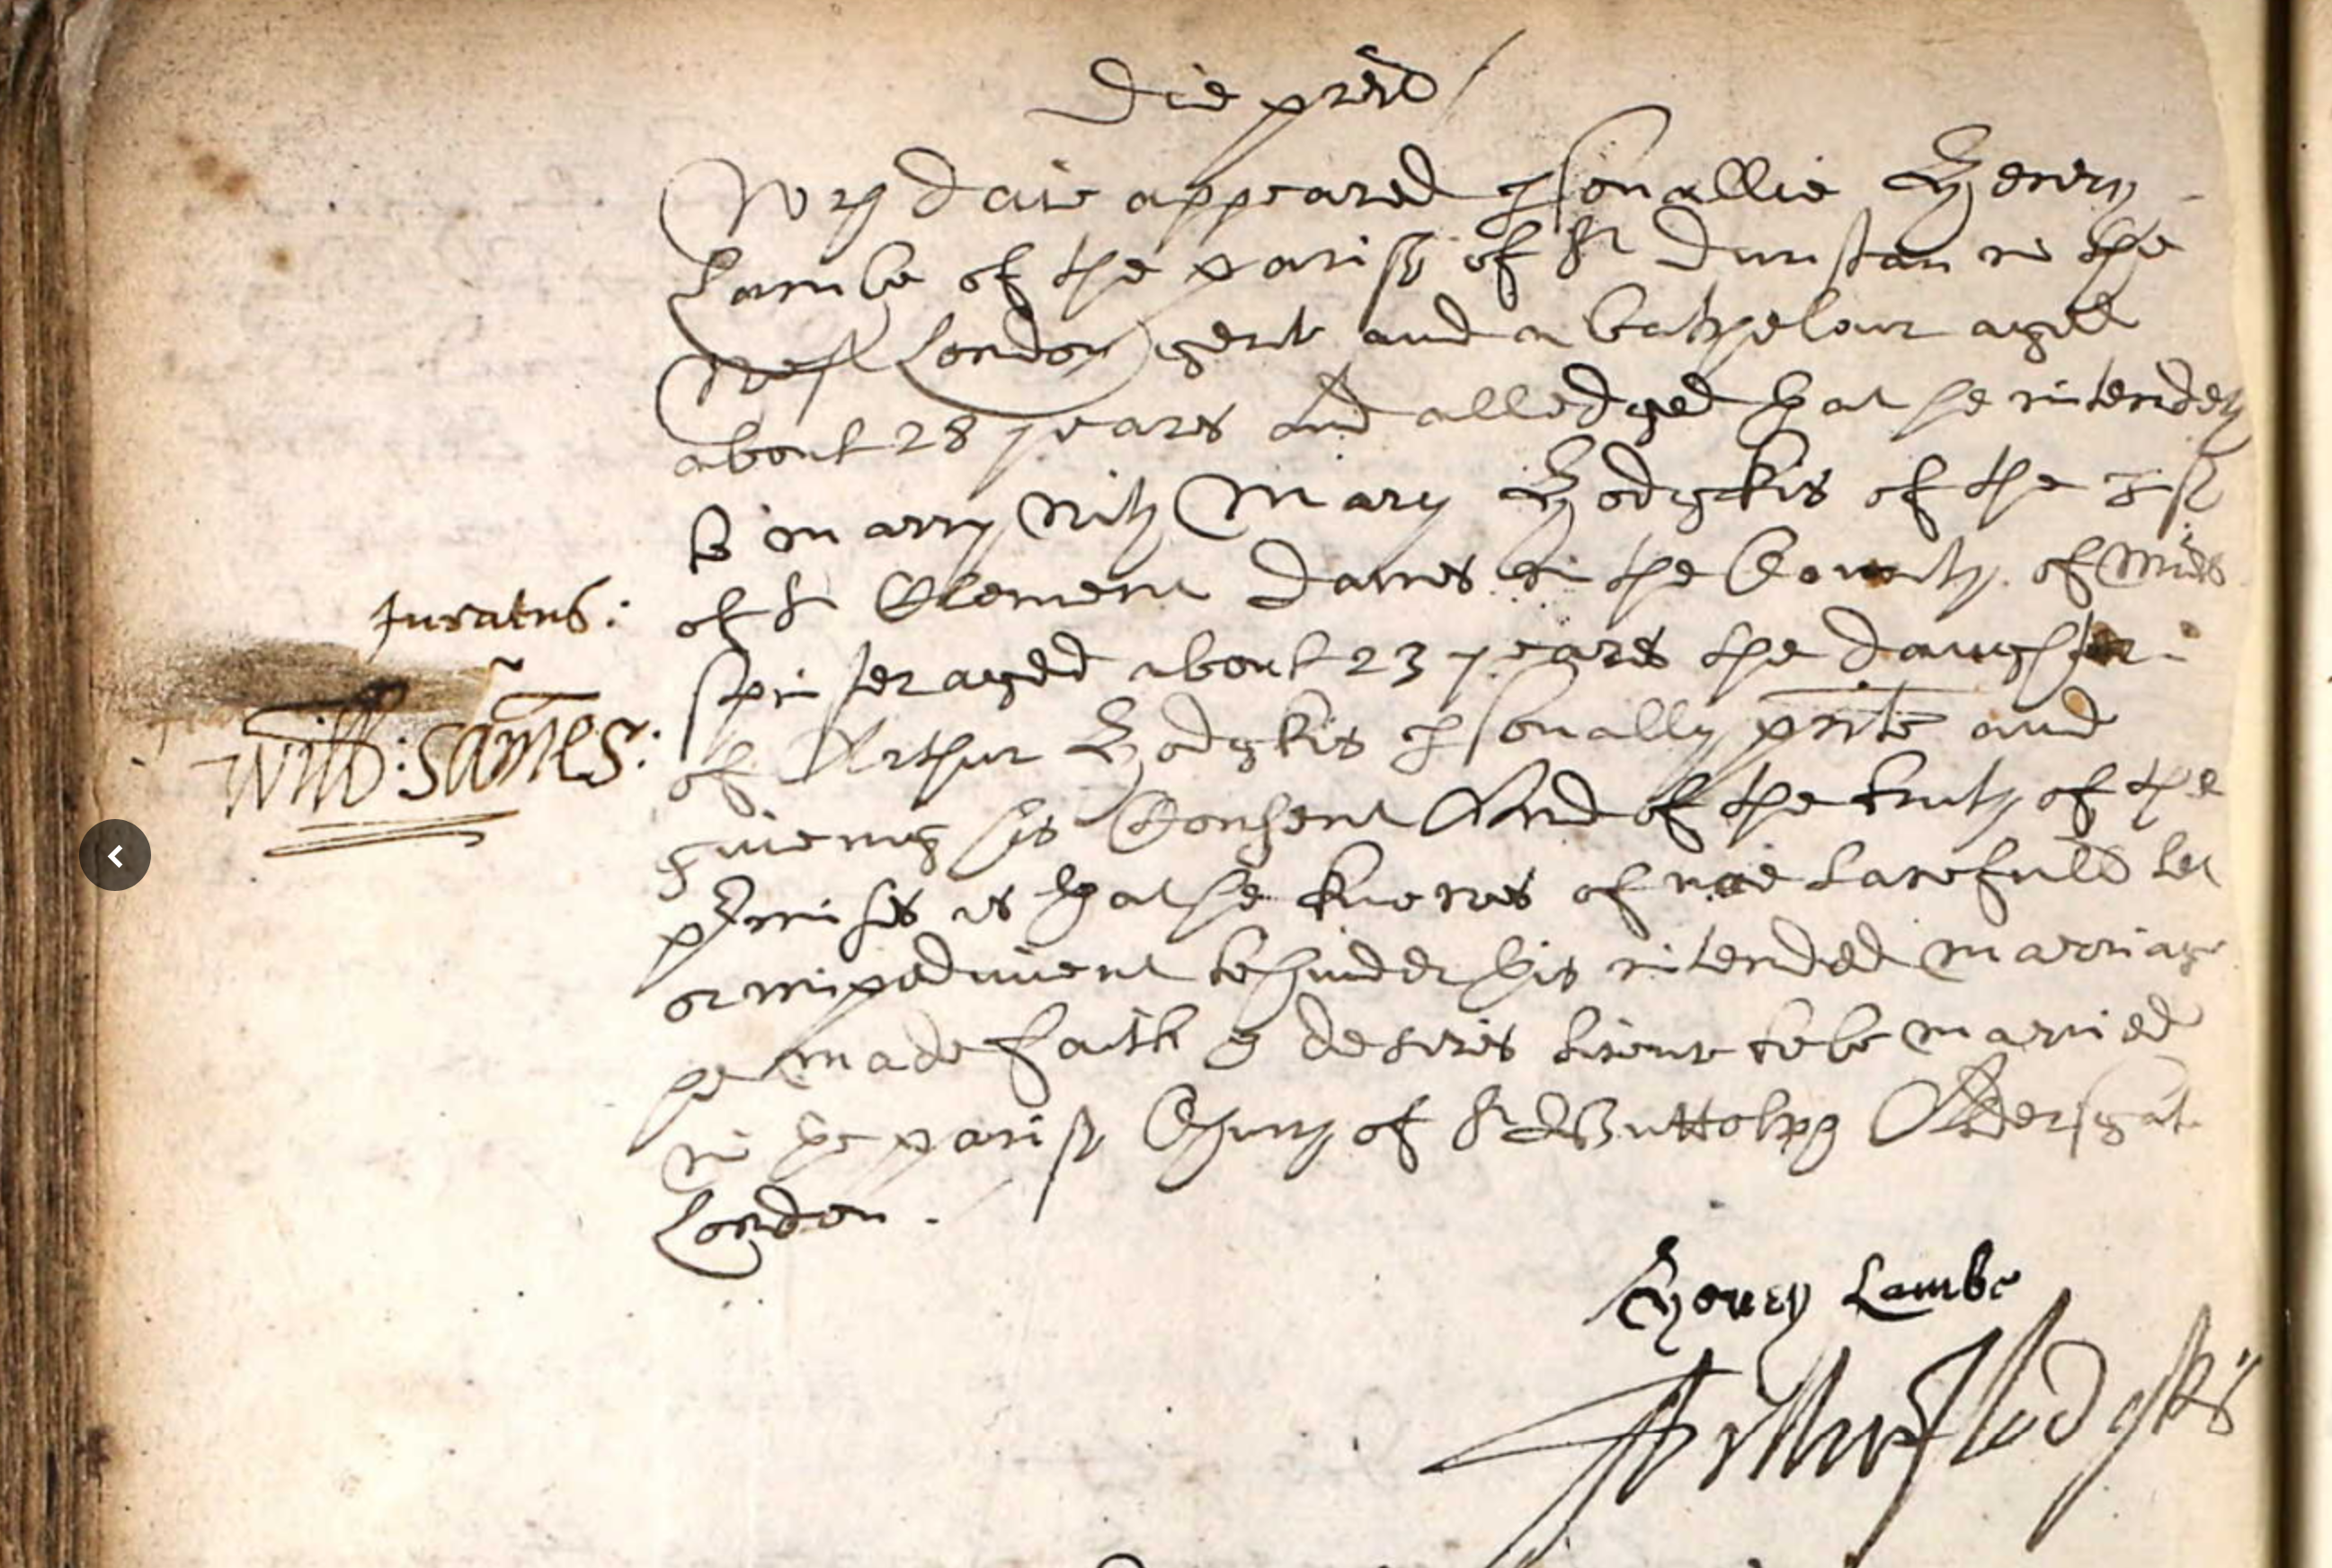 Die pred
Wch daie appeared psonallie Henry
Lambe of the parish of St Dunstan in the
West London gent and a batchelour aged
about 28 yeares and alledged that he intendeth
to marry with Mary Hodgkis of the psh
of St Clement Danes in the County of Midd
spinster aged about 23 yeares the daughter
of Arthur Hodgkis psonally prnte and
giveing his Consent And of the truth of the
Juratus:
Will: Sames:
pmisses & that he knowes of noe lawfull let
or impediment to hinder this intended marriage
he made faith & desires licence to be married
in the parish Church of St Buttolph Aldersgat
London.
Henry Lambe
Arthur Hodgkis